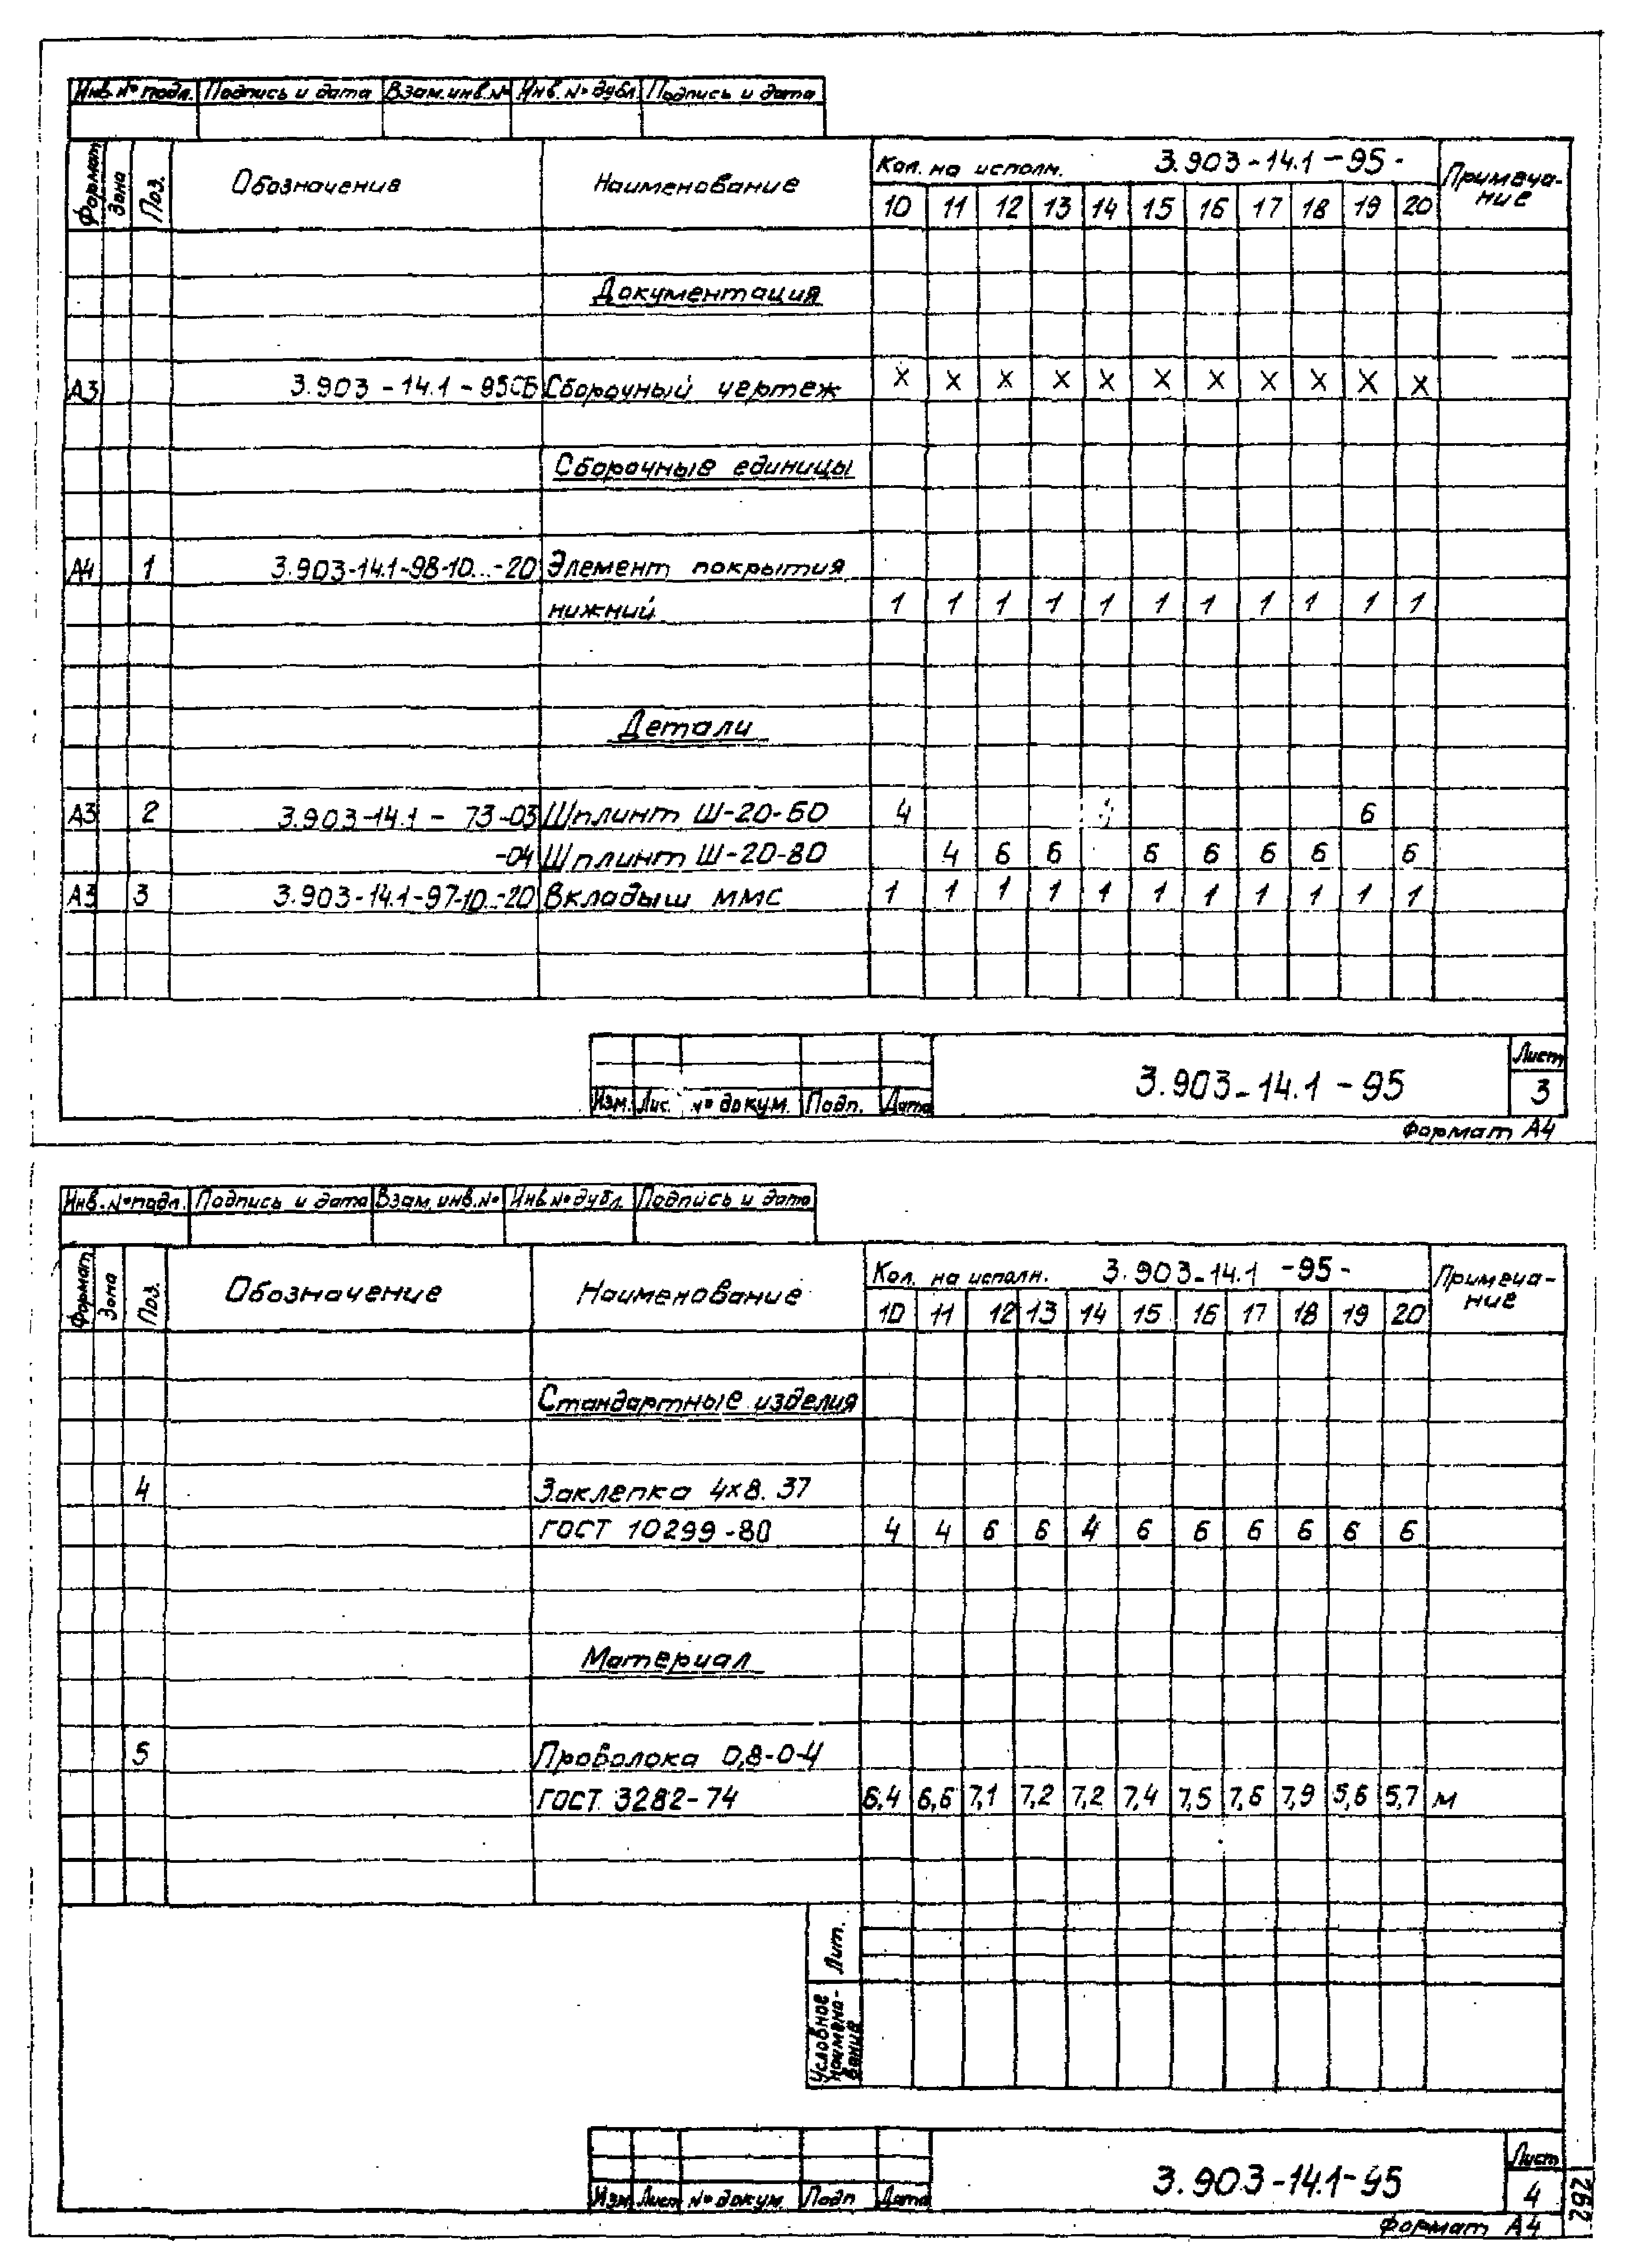 Инв. № подл. Подпись и дата Взам.инв.№ Инв. № дубл Подпись и дата
Формат Зона Поз. Обозначение Наименование Кол. на исполн. 3.903-14.1-95- Примеча-
ние
10 11 12 13 14 15 16 17 18 19 20
Документация
А3 3.903-14.1-95СБ Сборочный чертеж X X X X X X X X X X X
Сборочные единицы
А4 1 3.903-14.1-98-10...-20 Элемент покрытия
нижний 1 1 1 1 1 1 1 1 1 1 1
Детали
А3 2 3.903-14.1-73-03 Шплинт Ш-20-60 4 6
-04 Шплинт Ш-20-80 4 6 6 6 6 6 6 6
А3 3 3.903-14.1-97-10...-20 Вкладыш ММС 1 1 1 1 1 1 1 1 1 1 1
Изм. Лис. № докум. Подп. Дата
3.903-14.1-95
Лист
3
Формат А4
Инв. № подл. Подпись и дата Взам. инв.№ Инв № дубл. Подпись и дата
Формат Зона Поз. Обозначение Наименование Кол. на исполн. 3.903-14.1-95- Примеча-
ние
10 11 12 13 14 15 16 17 18 19 20
Стандартные изделия
4 Заклепка 4х8.37
ГОСТ 10299-80 4 4 6 6 4 6 6 6 6 6 6
Материал
5 Проволока 0,8-0-Ч
ГОСТ 3282-74 6,4 6,6 7,1 7,2 7,2 7,4 7,5 7,6 7,9 5,6 5,7 м
Лит.
Условное
наимено-
вание
Изм Лист № докум. Подп Дата
3.903-14.1-95
Лист
4
Формат А4
292